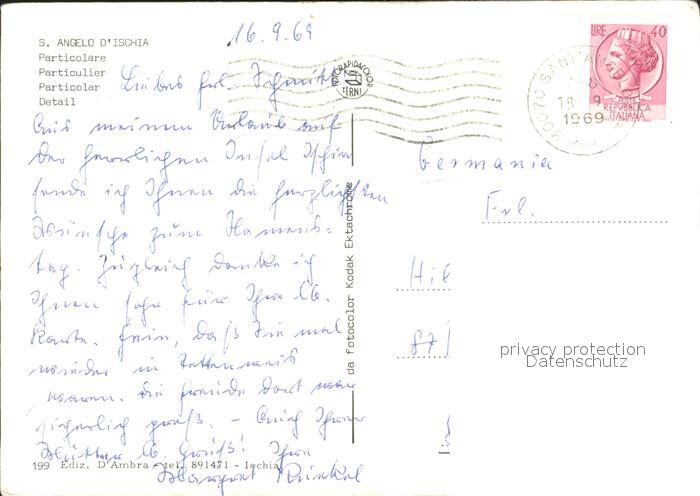 16.9.69
S. ANGELO D'ISCHIA
Particolare
Particulier
Particolar
Detail
Liebes Frl. Schmitt
Aus meinem Urlaub auf
der herrlichen Insel Ischia
sende ich Ihnen die herzlichsten
Wünsche zum Namens-
tag. Zugleich danke ich
Ihnen sehr für Ihre lb.
Karte. Fein, daß Sie mal
wieder in Tettenweis
waren. die Freude dort war
sicherlich groß. - Auch Ihrer
Mutter lb. Grüß! Ihre
Margret Künkel
199 Ediz. D'Ambra - tel. 891471 - Ischia
da fotocolor Kodak Ektachrome
FOTORAPIDACOLOR
TERNI
LIRE 40
REPVBBLICA
ITALIANA
80070 SANT'ANGELO
18 9
1969
Germania
Frl.
Hil
87
privacy protection
Datenschutz